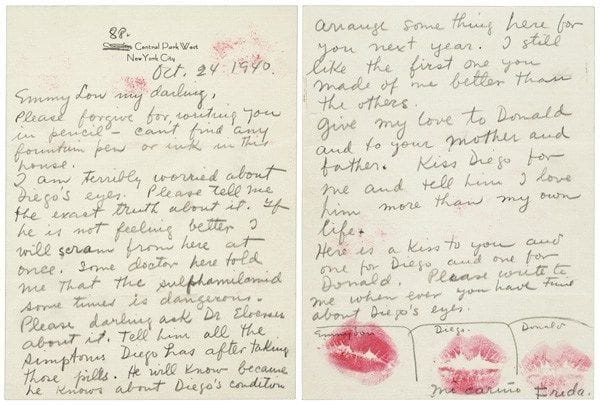 88.
Central Park West
New York City
Oct. 24 1940.
Emmy Lou my darling,
Please forgive for writing you
in pencil – can't find any
fountain pen or ink in this
house.
I am terribly worried about
Diego's eyes. Please tell me
the exact truth about it. If
he is not feeling better I
will scram from here at
once. Some doctor here told
me that the sulphamilamid
some times is dangerous.
Please darling ask Dr Eloesser
about it. Tell him all the
symptoms Diego has after taking
those pills. He will know because
he knows about Diego's condition
arrange some thing here for
you next year. I still
like the first one you
made of me better than
the others.
Give my love to Donald
and to your mother and
father. Kiss Diego for
me and tell him I love
him more than my own
life.
Here is a kiss to you and
one for Diego and one for
Donald. Please write to
me when ever you have time
about Diego's eyes.
Emmylou Diego. Donald
mi cariño Frida.